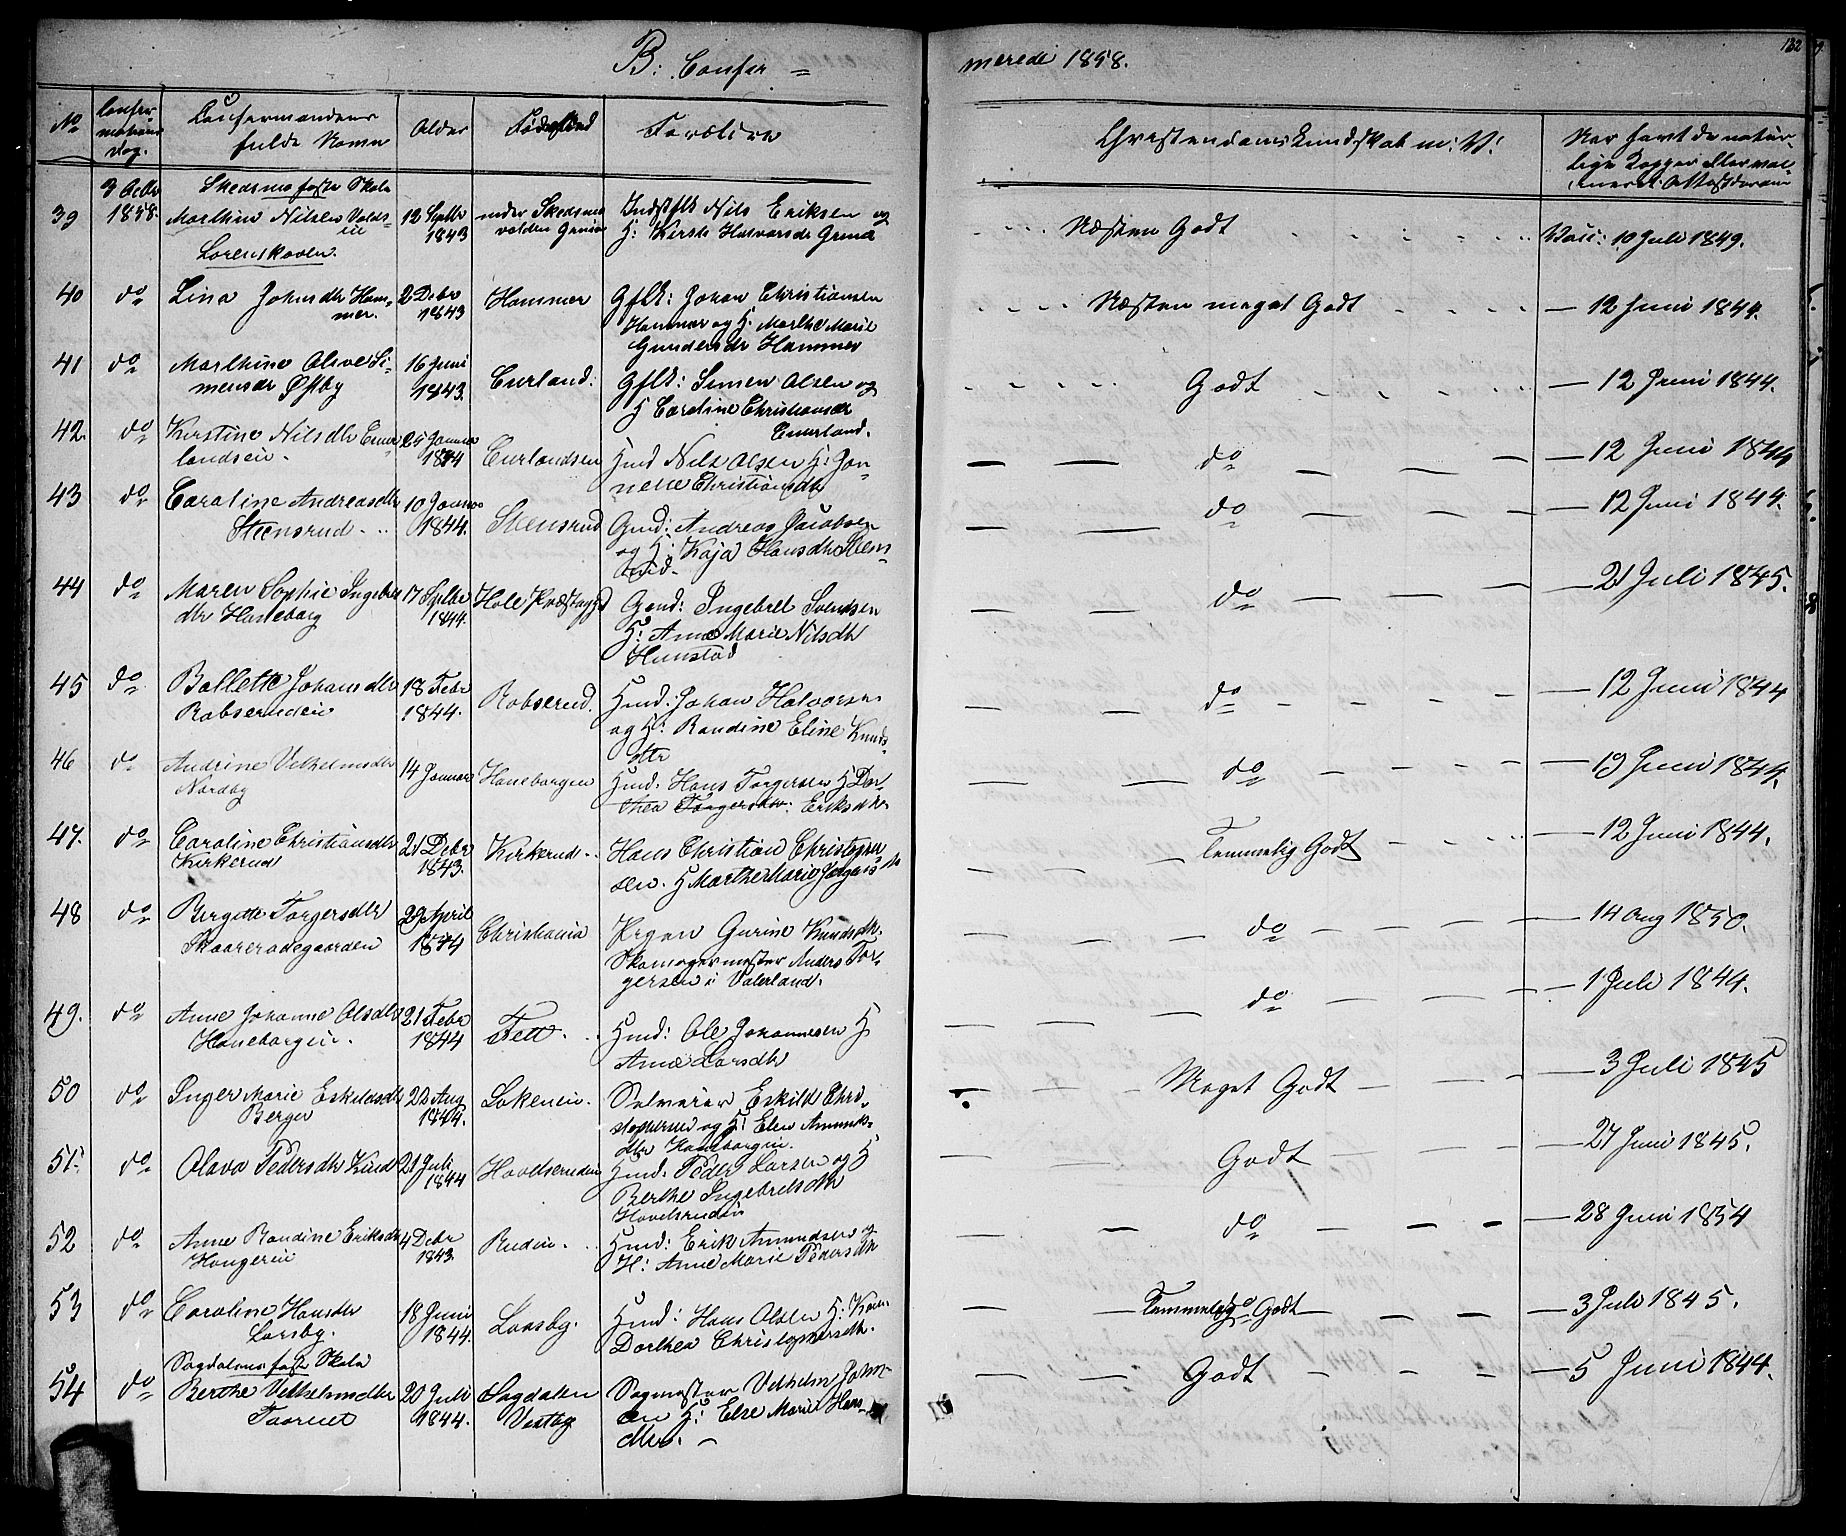 B. Confir = merede 1858.
132
No
Confir
mations
dag.
Confirmandens
fulde Navn
Alder
Fødested
Forældre
Christendomskundskab m: V:
Naar havt de natur-
lige Kopper eller vac-
cineret: Attest derom
3 Octbr
1858.
Skedsmo faste Skole
39 Marthine Nilsen Volds-
ei
12 Septbr
1843
under Skedsmo
volden
Indst flk Nils Eriksen og
H: Kirsti Halvorsdr
Næsten Godt
Vacc: 10 Juli 1849.
Lørenskoven.
40 do Lina Johnsdtr Ham-
mer.
2 Debr
1843
Hammer
Gflk: Johan Christiansen
Hammer og H. Marthe Marie
Gundersdr Hammer
Næsten meget Godt
— 12 Juni 1844.
41 do Marthine Olive Si-
mensdr Østby
16 Juni
1843.
Curland.
Gflk: Simen Olsen og
H Caroline Christiansdr
Curland.
Godt
— 12 Juni 1844.
42. do Kirstine Nilsdtr Cur-
landseie.
25 Januar
1844
Curlandseie
Hmd Nils Olsen H: Jon-
nette Christiansdtr
do
12 Juni 1844
43 do Caroline Andreasdtr
Steensrud
10 Januar
1844.
Stensrud
Gmd: Andreas Jacobsen
og H: Kaja Hansdtr Stens-
rud.
do
— 12 Juni 1844.
44 do Maren Sophie Ingebret
dtr Haneborg
17 Septbr
1844.
Hole Præstegjd
Gmd: Ingebret Svendsen
H: Anne Marie Nilsdtr
Hunstad
do
— 21 Juli 1845.
45 do Bollette Johansdtr
Robsrudeie
18 Febr
1844.
Robsrud.
Hmd: Johan Halvorsen
og H: Randine Eline Knuds-
dtr
do
— 12 Juni 1844
46 do Andrine Vilhelmsdtr
Nordby
14 Januar
Haneborgen
Hmd. Hans Torgersen H Dor-
thea Torgersdtr: Eriksdtr
do
— 19 Juni 1844.
47. do Caroline Christiansdtr
Kirkerud
21 Debr
1843.
Kirkerud
Hans Christian Christopher
sen. H Marthe Marie Jørgensdtr
Temmelig Godt
— 12 Juni 1844.
48 do Bergitte Torgersdtr
Skaarerødegaarden
29 April
1844
Christiania
Pigen Gurine Knudsdtr.
Skomagermester Anders Tor-
gersen i Vaterland.
do
— 14 Aug 1850.
49. do Anne Johanne Olsdtr
Haneborgeie.
21 Febr
1844
Fett
Hmd: Ole Johannesen H
Anne Larsdtr
do
— 1 Juli 1844.
50 do Inger Marie Eskildsdtr
Berger
22 Aug
1844.
Løkeneie.
Selveier Eskild Chri-
stophersen og H: Elen Amunds-
dtr Haneborgeie.
Meget Godt
— 3 Juli 1845
51. do Olava Pedersdtr Kind
21 Juli
1844
Hovelsruden
Hmd. Peder Larsen og H
Berthe Ingebretsdtr
Hovelsrudeie
Godt
— 27 Juni 1845.
52 do Anne Randine Eriksdtr
Haugereie
4 Debr
1843
Rudeie.
Hmd: Erik Amundsen og
H: Anne Marie Pedersdtr
do
— 28 Juni 1854
53 do Caroline Hansdtr
Losby.
18 Juni
1844.
Losby.
Hmd: Hans Olsen H: Karen
Dorthea Christophersdtr.
Temmelig Godt
— 3 Juli 1845.
Sagdalens faste Skole
54 do Berthe Vilhelmsdtr
20 Juli
1844.
Sagdalen
Vestby
Sagmester Vilhelm John-
sen H: Else Marie Hans-
dtr. —
Godt
— 5 Juni 1844.